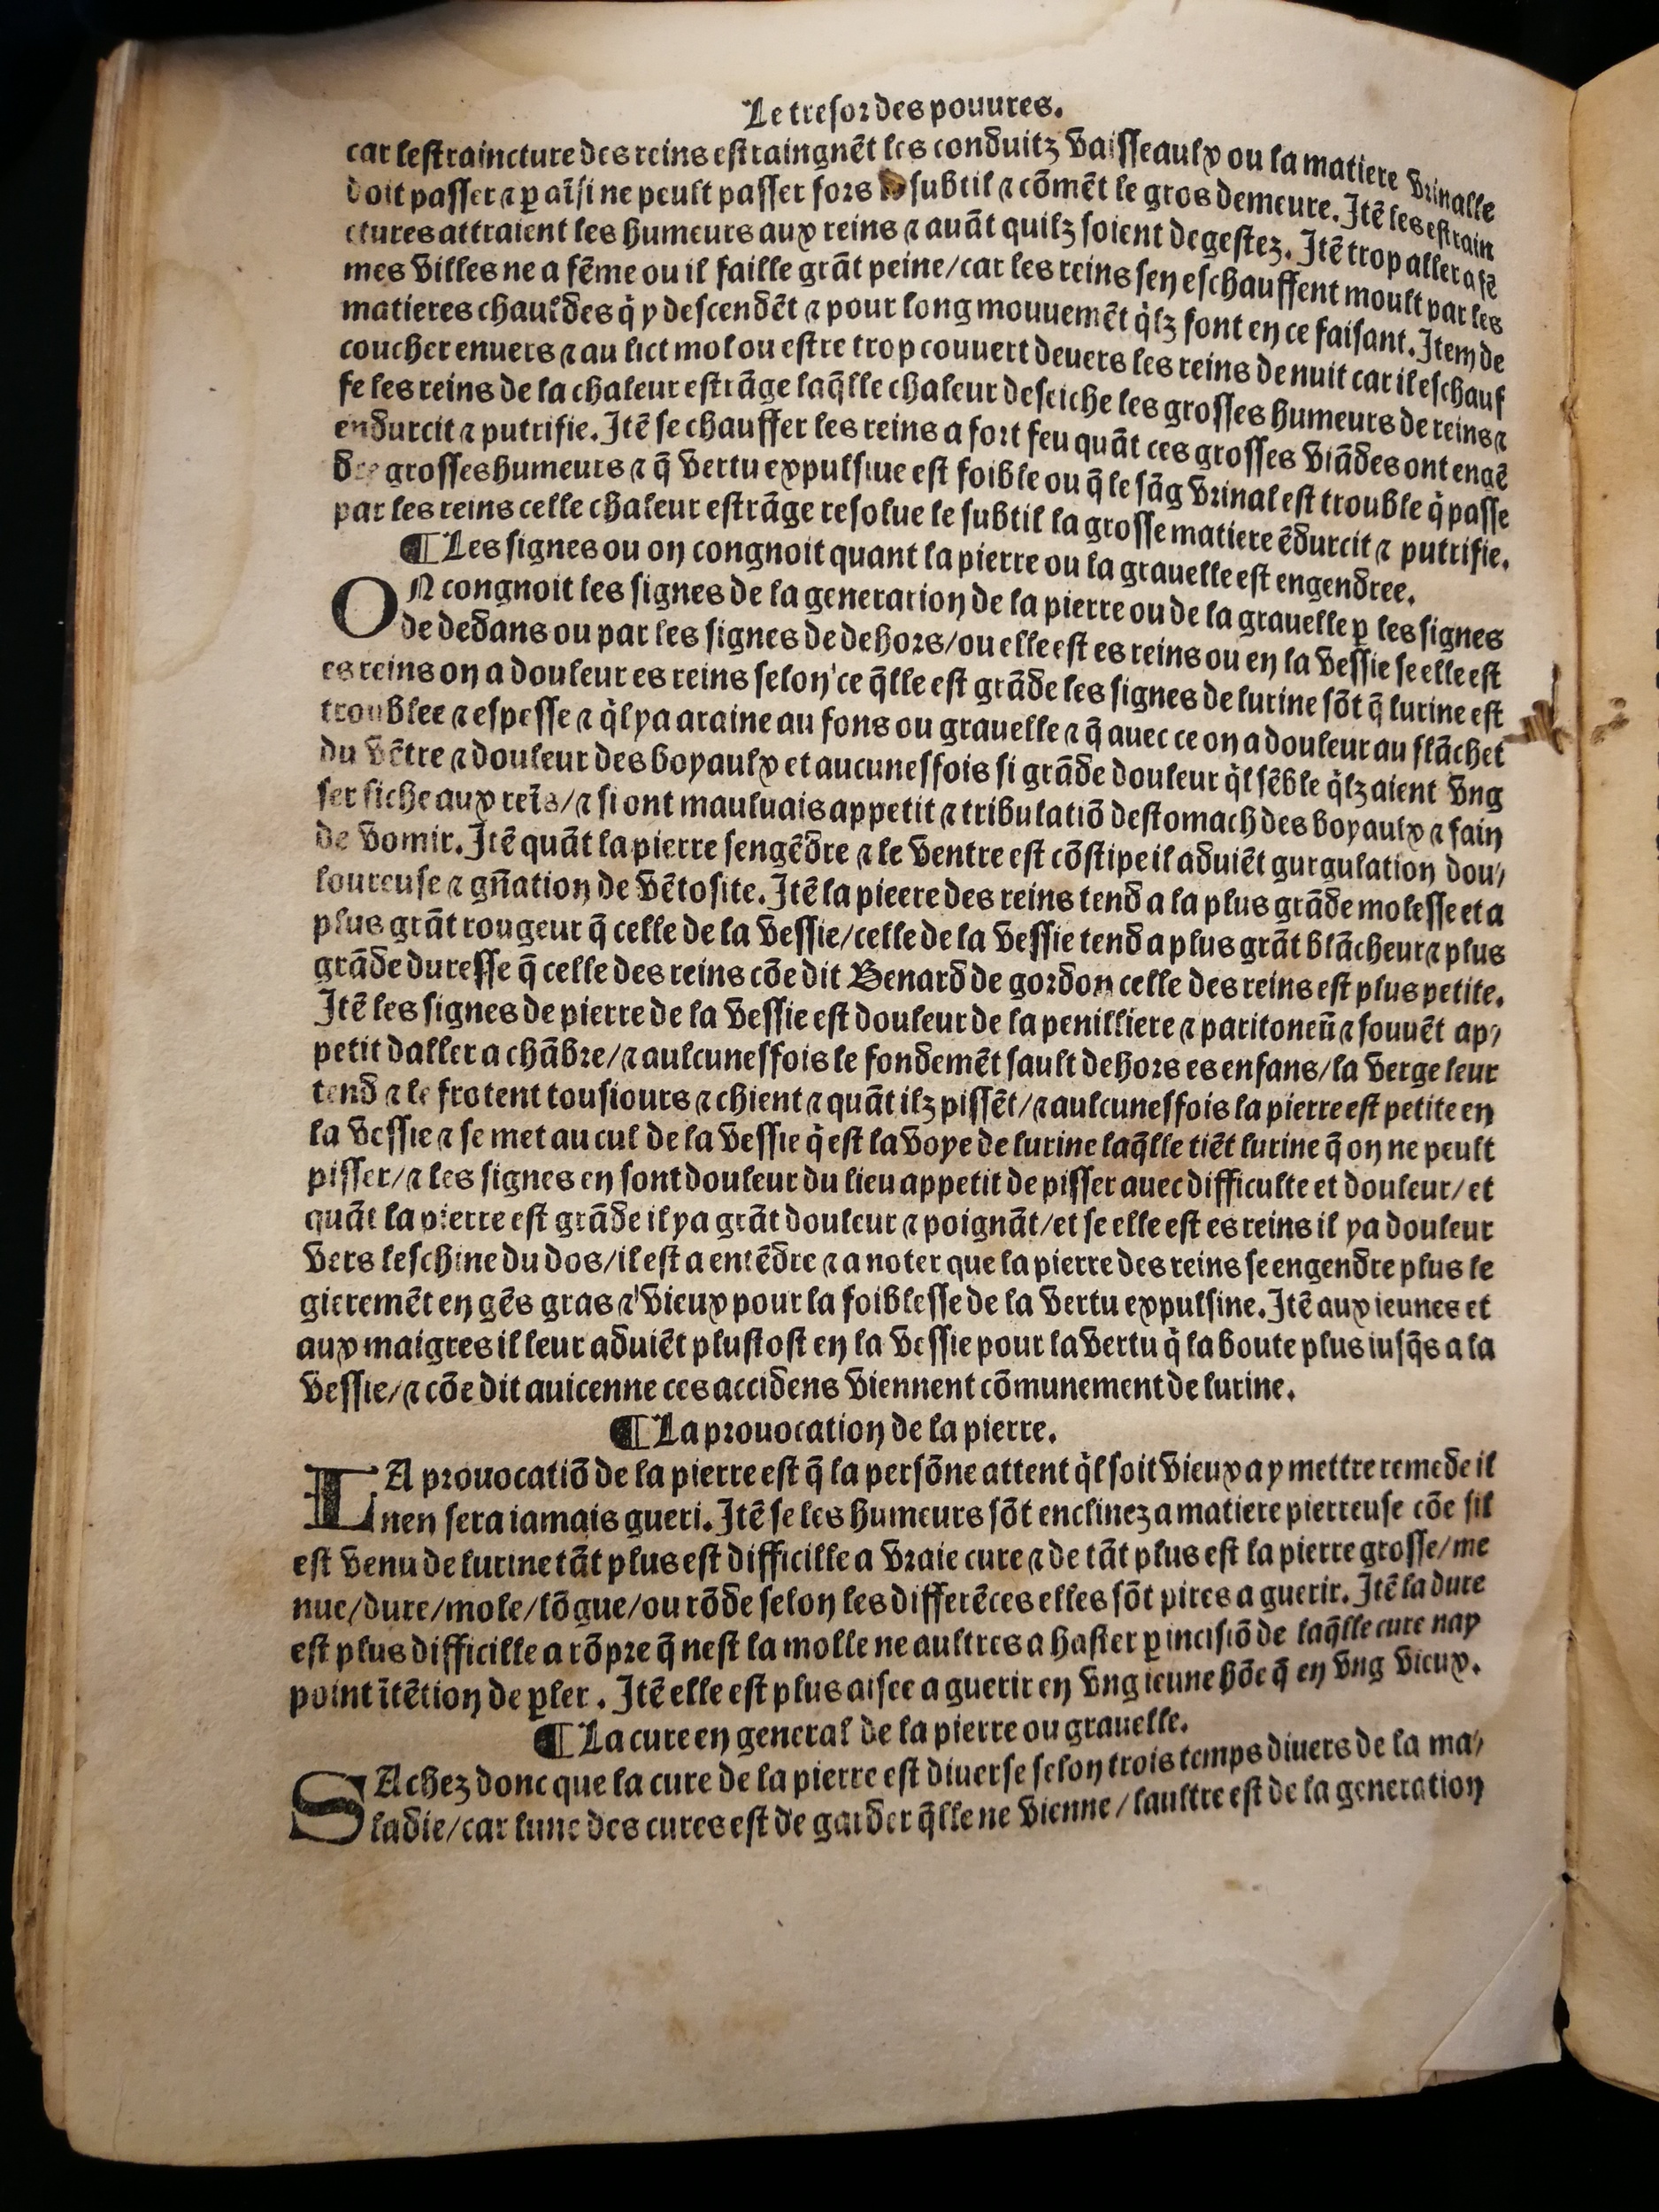 Le tresor des pouures.
car lestraincture des reins estraingnēt les conduitz vaisseaulx ou la matiere vrinalle
doit passer ⁊ ꝑ aīsi ne peult passer fors subtil ⁊ cōmēt le gros demeure. Itē les estrain
ctures attraient les humeurs aux reins ⁊ auāt quilz soient degestez. Itē trop aller a fē
mes villes ne a fēme ou il faille grāt peine/car les reins sen eschauffent moult par les
matieres chauldes q̇ y descendēt ⁊ pour long mouuemēt q̇lz font en ce faisant. Item de
coucher enuers ⁊ au lict mol ou estre trop couuert deuers les reins de nuit car il eschauf
fe les reins de la chaleur estrāge laq̄lle chaleur deseiche les grosses humeurs de reins ⁊
endurcit ⁊ putrifie. Itē se chauffer les reins a fort feu quāt ces grosses viādes ont engē
dre grosses humeurs ⁊ q̄ vertu expulsiue est foible ou q̄ le sāg vrinal est trouble q̇ passe
par les reins celle chaleur estrāge resolue le subtil la grosse matiere ēdurcit ⁊ putrifie.
¶ Les signes ou on congnoit quant la pierre ou la grauelle est engendree.
ON congnoit les signes de la generation de la pierre ou de la grauelle ꝑ les signes
de dedans ou par les signes de dehors/ou elle est es reins ou en la vessie se elle est
es reins on a douleur es reins selon ce q̄lle est grāde les signes de lurine sōt q̄ lurine est
troublee ⁊ espesse ⁊ q̇l ya araine au fons ou grauelle ⁊ q̄ auec ce on a douleur au flāchet
du vētre ⁊ douleur des boyaulx et aucunesfois si grāde douleur q̇l sēble q̇lz aient vng
fer fiche aux reīs/⁊ si ont mauluais appetit ⁊ tribulatiō destomach des boyaulx ⁊ fain
de vomir. Itē quāt la pierre sengēdre ⁊ le ventre est cōstipe il aduiēt gurgulation dou/
loureuse ⁊ gn̄ation de vētosite. Itē la pieere des reins tend a la plus grāde molesse et a
plus grāt rougeur q̄ celle de la vessie/celle de la vessie tend a plus grāt blācheur ⁊ plus
grāde duresse q̄ celle des reins cōe dit Benard de gordon celle des reins est plus petite.
Itē les signes de pierre de la vessie est douleur de la penilliere ⁊ paritoneū ⁊ souuēt ap/
petit daller a chābre/⁊ aulcunesfois le fondemēt sault dehors es enfans/la verge leur
tend ⁊ le frotent tousiours ⁊ chient ⁊ quāt ilz pissēt/⁊ aulcunesfois la pierre est petite en
la vessie ⁊ se met au cul de la vessie q̇ est la voye de lurine laq̄lle tiēt lurine q̄ on ne peult
pisser/⁊ les signes en sont douleur du lieu appetit de pisser auec difficulte et douleur/et
quāt la pierre est grāde il ya grāt douleur ⁊ poignāt/et se elle est es reins il ya douleur
vers leschine du dos/il est a entēdre ⁊ a noter que la pierre des reins se engendre plus le
gieremēt en gēs gras ⁊ vieux pour la foiblesse de la vertu expulsine. Itē aux ieunes et
aux maigres il leur aduiēt plustost en la vessie pour la vertu q̇ la boute plus iusq̄s a la
vessie/⁊ cōe dit auicenne ces accidens viennent cōmunement de lurine.
¶ La prouocation de la pierre.
LA prouocatiō de la pierre est q̄ la persōne attent q̇l soit vieux a y mettre remede il
nen sera iamais gueri. Itē se les humeurs sōt enclinez a matiere pierreuse cōe sil
est venu de lurine tāt plus est difficille a vraie cure ⁊ de tāt plus est la pierre grosse/me
nue/dure/mole/lōgue/ou rōde selon les differēces elles sōt pires a guerir. Itē la dure
est plus difficille a rōpre q̄ nest la molle ne aultres a haster ꝑ incisiō de laq̄lle cure nay
point ītētion de ꝑler. Itē elle est plus aisee a guerir en vng ieune hōe q̄ en vng vieux.
¶ La cure en general de la pierre ou grauelle.
SAchez donc que la cure de la pierre est diuerse selon trois temps diuers de la ma/
ladie/car lune des cures est de garder q̄lle ne vienne/laultre est de la generation